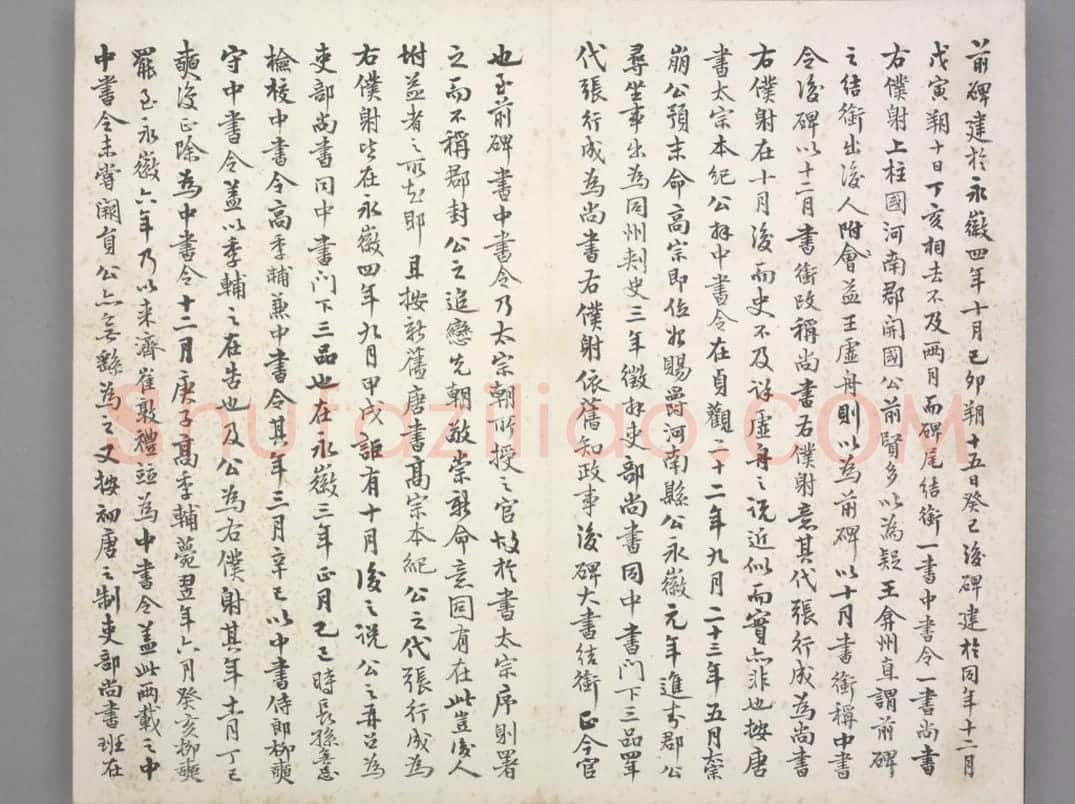 前碑建於永徽四年十月己卯朔十五日癸巳後碑建於同年十二月
戊寅朔十日丁亥相去不及兩月而碑尾結銜一書中書令一書尚書
右僕射上柱國河南郡開國公前賢多以為疑王弇州直謂前碑
之結銜出後人附會益王虛舟則以為前碑以十月書銜稱中書
令後碑以十二月書銜改稱尚書右僕射意其代張行成為尚書
右僕射在十月後而史不及詳虛舟之説近似而實亦非也按唐
書太宗本紀公拜中書令在貞觀二十二年九月二十三年五月太宗
崩公預末命高宗即位㳄賜爵河南縣公永徽元年進封郡公
尋坐事出為同州刺史三年徵拜吏部尚書同中書門下三品四年
代張行成為尚書右僕射依舊知政事後碑大書結銜正今官
也至前碑書中書令乃太宗朝所授之官故於書太宗序則署
之而不稱郡封公之追戀先朝敬崇新命意固有在此豈後人
坿益者之所知耶且按新舊唐書高宗本紀公之代張行成為
右僕射皆在永徽四年九月甲戌詎有十月後之説公之再召為
吏部尚書同中書門下三品也在永徽三年正月己巳時長孫無忌
檢校中書令高季輔兼中書令其年三月辛巳以中書侍郎柳奭
守中書令蓋以季輔之在告也及公為右僕射其年十一月丁巳
奭復正除為中書令十二月庚子高季輔薨翌年六月癸亥柳奭
罷至永徽六年乃以来濟崔敦禮竝為中書令蓋此兩載之中
中書令未嘗闕員公亦無繇為之又按初唐之制吏部尚書班在
Shufaziliao.COM